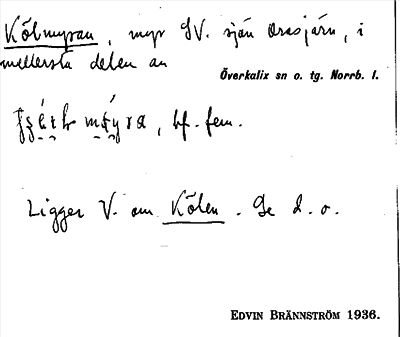 Kölmyran, myr SV. sjön Orasjärv, i
mellersta delen av
Överkalix sn o. tg. Norrb. l.
bf. fem.
Ligger V. om Kölen. Se d. o.
EDVIN BRÄNNSTRÖM 1936.